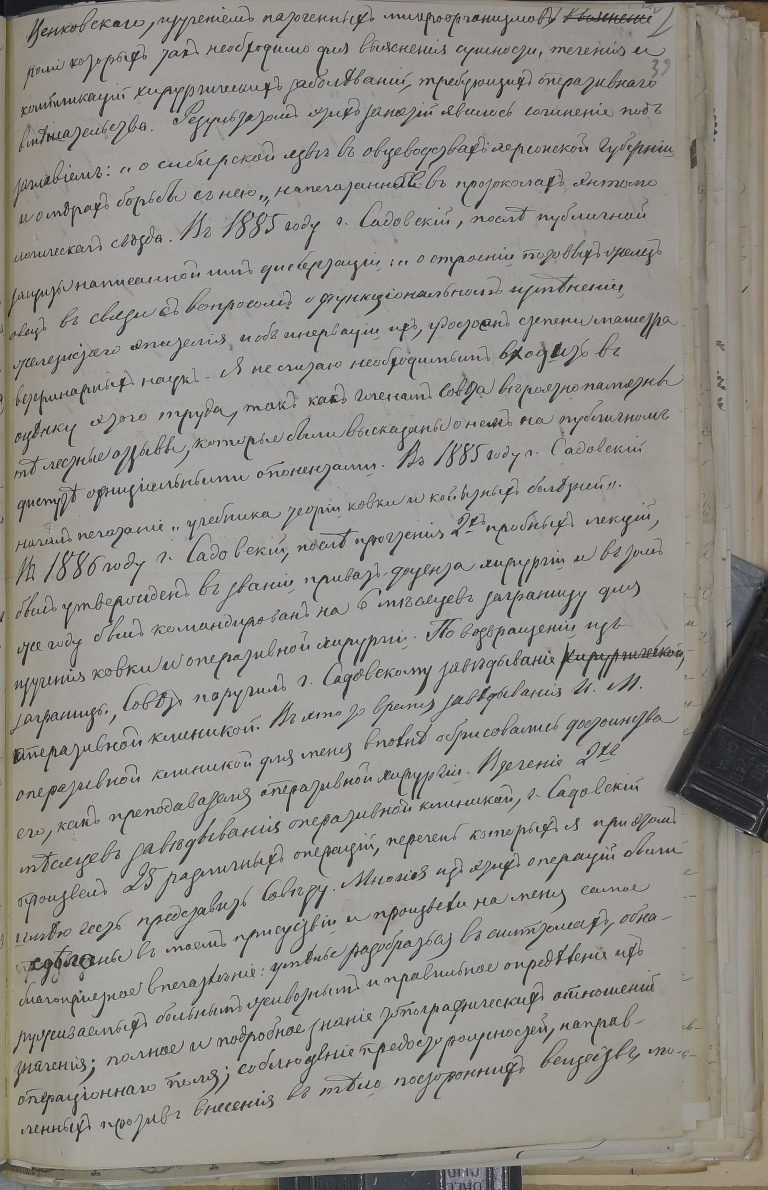 Ценковскаго, изученіемъ патогенныхъ микроорганизмовъ, выясненіе
39
роли которыхъ такъ необходимо для выясненія сущности, теченія и
компликацій хирургическихъ заболѣваній, требующихъ оперативнаго
вмѣшательства. Результатомъ этихъ занятій явилось сочиненіе подъ
заглавіемъ: „о сибирской язвѣ въ овцеводствахъ Херсонской Губерніи
и о мѣрахъ борьбы съ нею„ напечатанное въ протоколахъ Энтомо
логическаго съѣзда. Въ 1885 году г. Садовскій, послѣ публичной
защиты написанной имъ диссертаціи: „о строеніи потовыхъ железъ
овецъ въ связи съ вопросомъ о функціональномъ измѣненіи
железистаго эпителія и объ инерваціи ихъ, удостоенъ степени магистра
ветеринарныхъ наукъ. Я не считаю необходимымъ входить въ
оцѣнку этого труда, такъ какъ членамъ Совѣта вѣроятно памятны
тѣ лестные отзывы, которые были высказаны о немъ на публичномъ
диспутѣ официальными опонентами. Въ 1885 году г. Садовскій
началъ печатаніе „учебника теоріи ковки и копытныхъ болѣзней„.
Въ 1886 году г. Садовскій, послѣ прочтенія 2хъ пробныхъ лекцій,
былъ утвержденъ въ званіи приватъ-доцента хирургіи и въ томъ
же году былъ командированъ на 6 мѣсяцевъ заграницу для
изученія ковки и оперативной хирургіи. По возвращеніи изъ
заграницы, Совѣтъ поручилъ г. Садовскому завѣдываніе хирургической
оперативной клиникой. Въ это то время завѣдыванія И. М.
оперативной клиникой для меня вполнѣ обрисовались достоинства
его, какъ преподавателя оперативной хирургіи. Втеченіе 2хъ
мѣсяцевъ завѣдыванія оперативной клиникой, г. Садовскій
произвелъ 25 различныхъ операцій, перечень которыхъ я при этомъ
имѣю честь представить Совѣту. Многія изъ этихъ операцій были
сдѣланы въ моемъ присутствіи и произвели на меня самое
благопріятное впечатлѣніе: умѣнье разобраться въ симптомахъ, обна-
руживаемыхъ больнымъ животнымъ и правильное опредѣленіе ихъ
значенія; полное и подробное знаніе топографическихъ отношеній
операціоннаго поля; соблюденіе предосторожностей, направ-
ленныхъ противъ внесенія въ тѣло постороннихъ веществъ, мо-